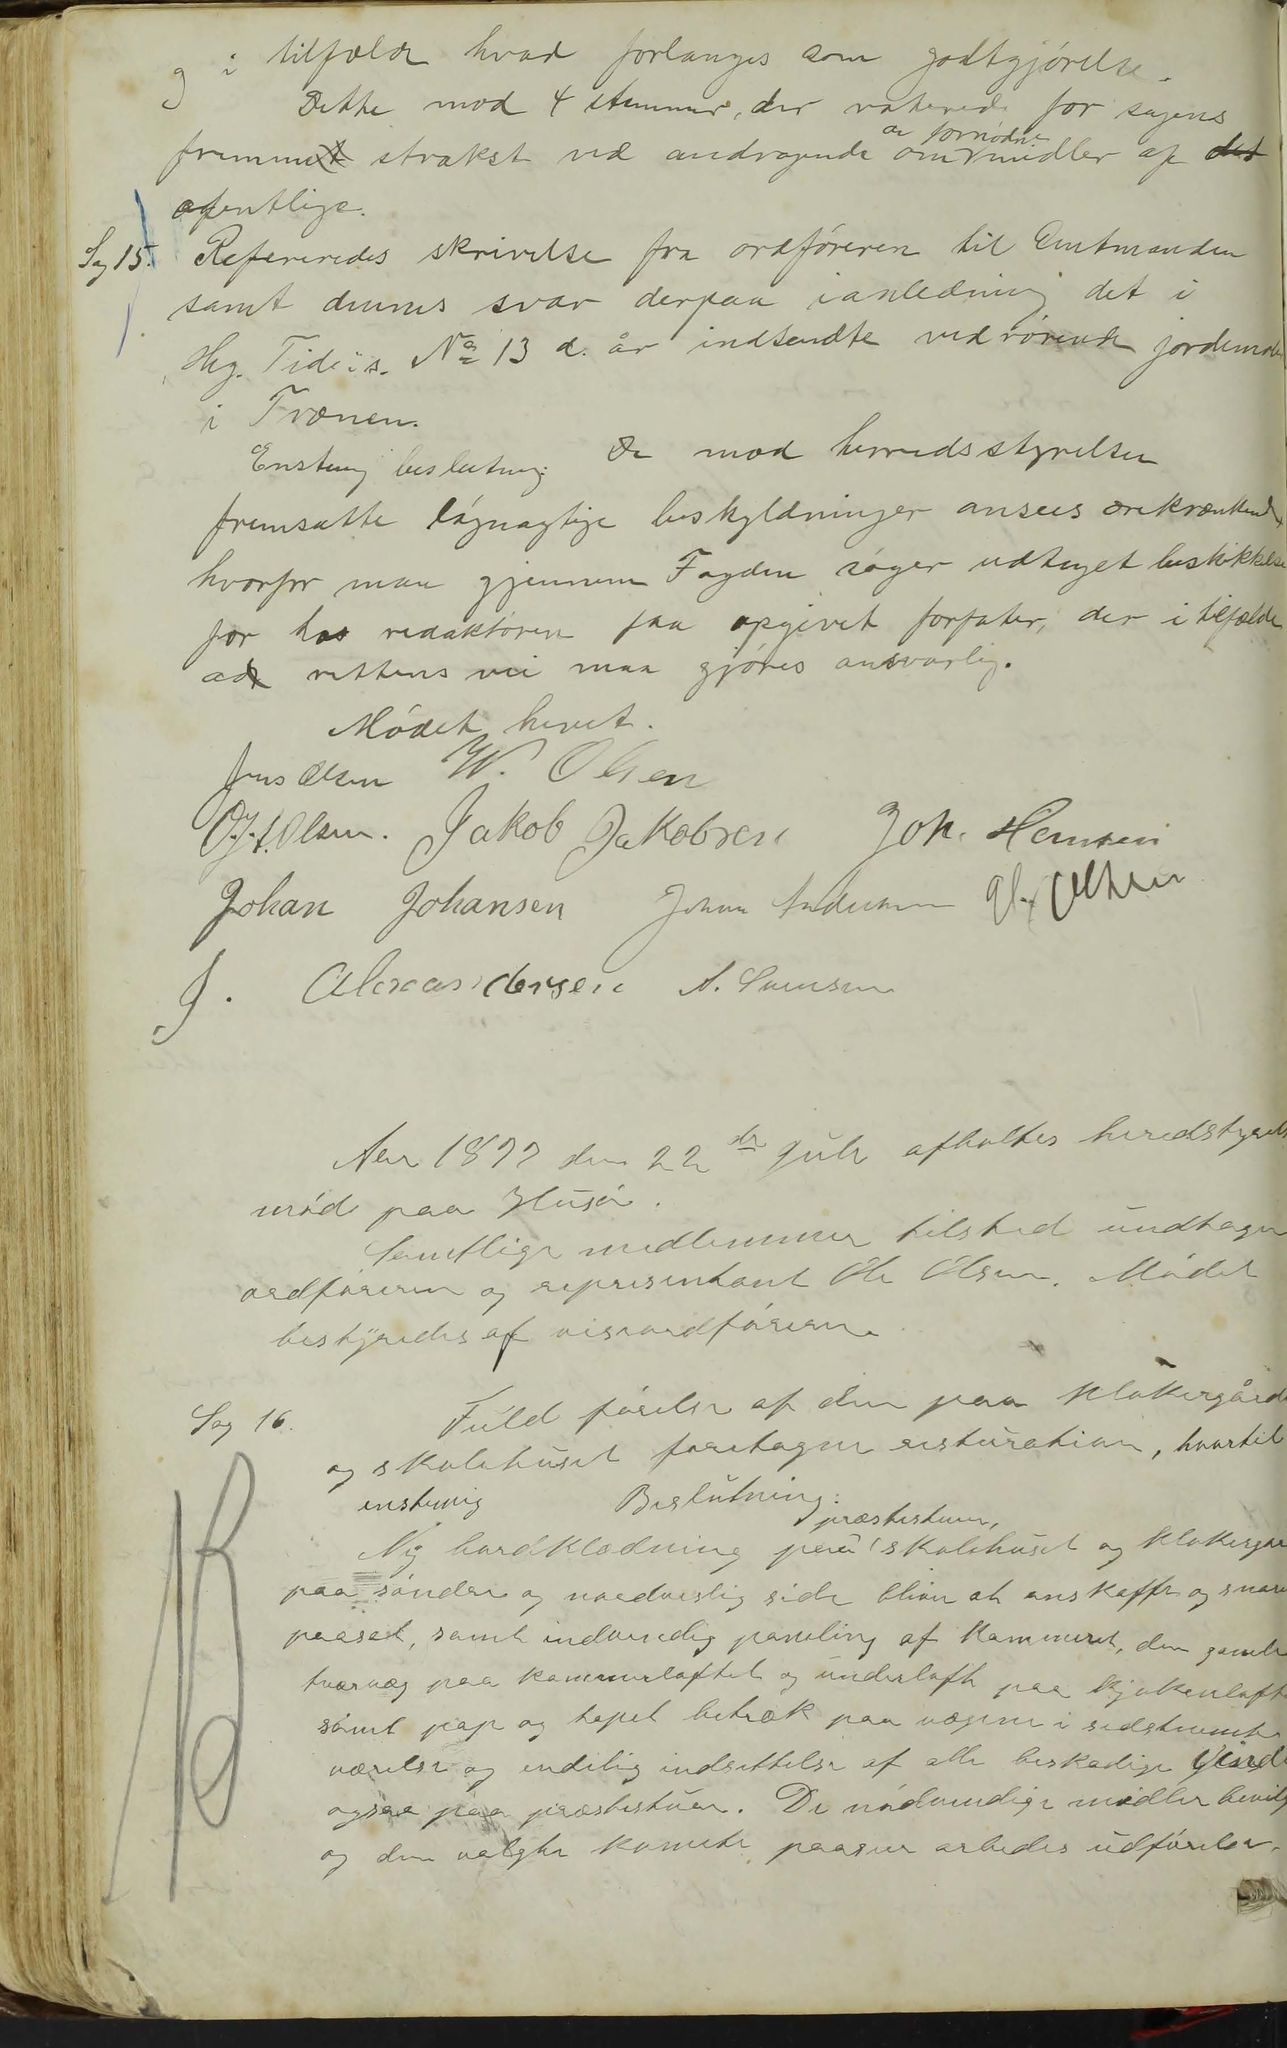 g i tilfælde hvad forlanges som godtgjörelse.
Dette mod 4 stemmer, der voterede for sagens
fremme strakst ved andragende om de fornødne midler af det
ofentlige.
Sag 15. Refereredes skrivelse fra ordföreren til Amtmanden
samt dennes svar derpaa ianledning det i
Hlg. Tidens. No 13 d. år indsendte vedrörende jordemod
i Trænen.
Enstemig beslutning: De mod herredsstyrelsen
fremsatte lögnagtige beskyldninger ansees ærekrænkende,
hvorfor man gjennem Fogden söger udtaget beskikkelse
for hos redaktören faa opgivet forfater, der i tilfælde
ad rettens vei maa gjöres ansvarlig.
Mödet hevet.
Jens Olsen W. Olsen
O. J. Olsen. Jakob Jakobsen Joh. Hemsen
Johan Johansen Johan Andersen
J. Alexandersen A. Svensen
Aar 1877 den 22de Juli afholtes heredstyrels
möde paa Husö.
Samtlige medlemmer tilsted undtagen
ordföreren og representant Ole Olsen. Mödet
bestyredes af viseordföreren.
Sag 16. Fuld förelse af den paa Klokergårde
og skolehuset foretagen resturation, hvortil
enstemig Beslutning:
præstestuen,
Ny bordklædning paa skolehuset og Klokergår
paa söndre og nordvestlig side bliver at anskaffe og snare
paasat, samt indvendig paneling af Kammeret, den gamle
tværvæg paa kammerloftet og underloft paa kjökenloft
samt pap og tapet betræk paa vægene i sidstnevnte
værelse og endelig indsettelse af alle beskadige Vindu
ogsaa paa præstestuen. De nödvendige midler bevilg
og den valgte komite paaser arbeides udförelse.